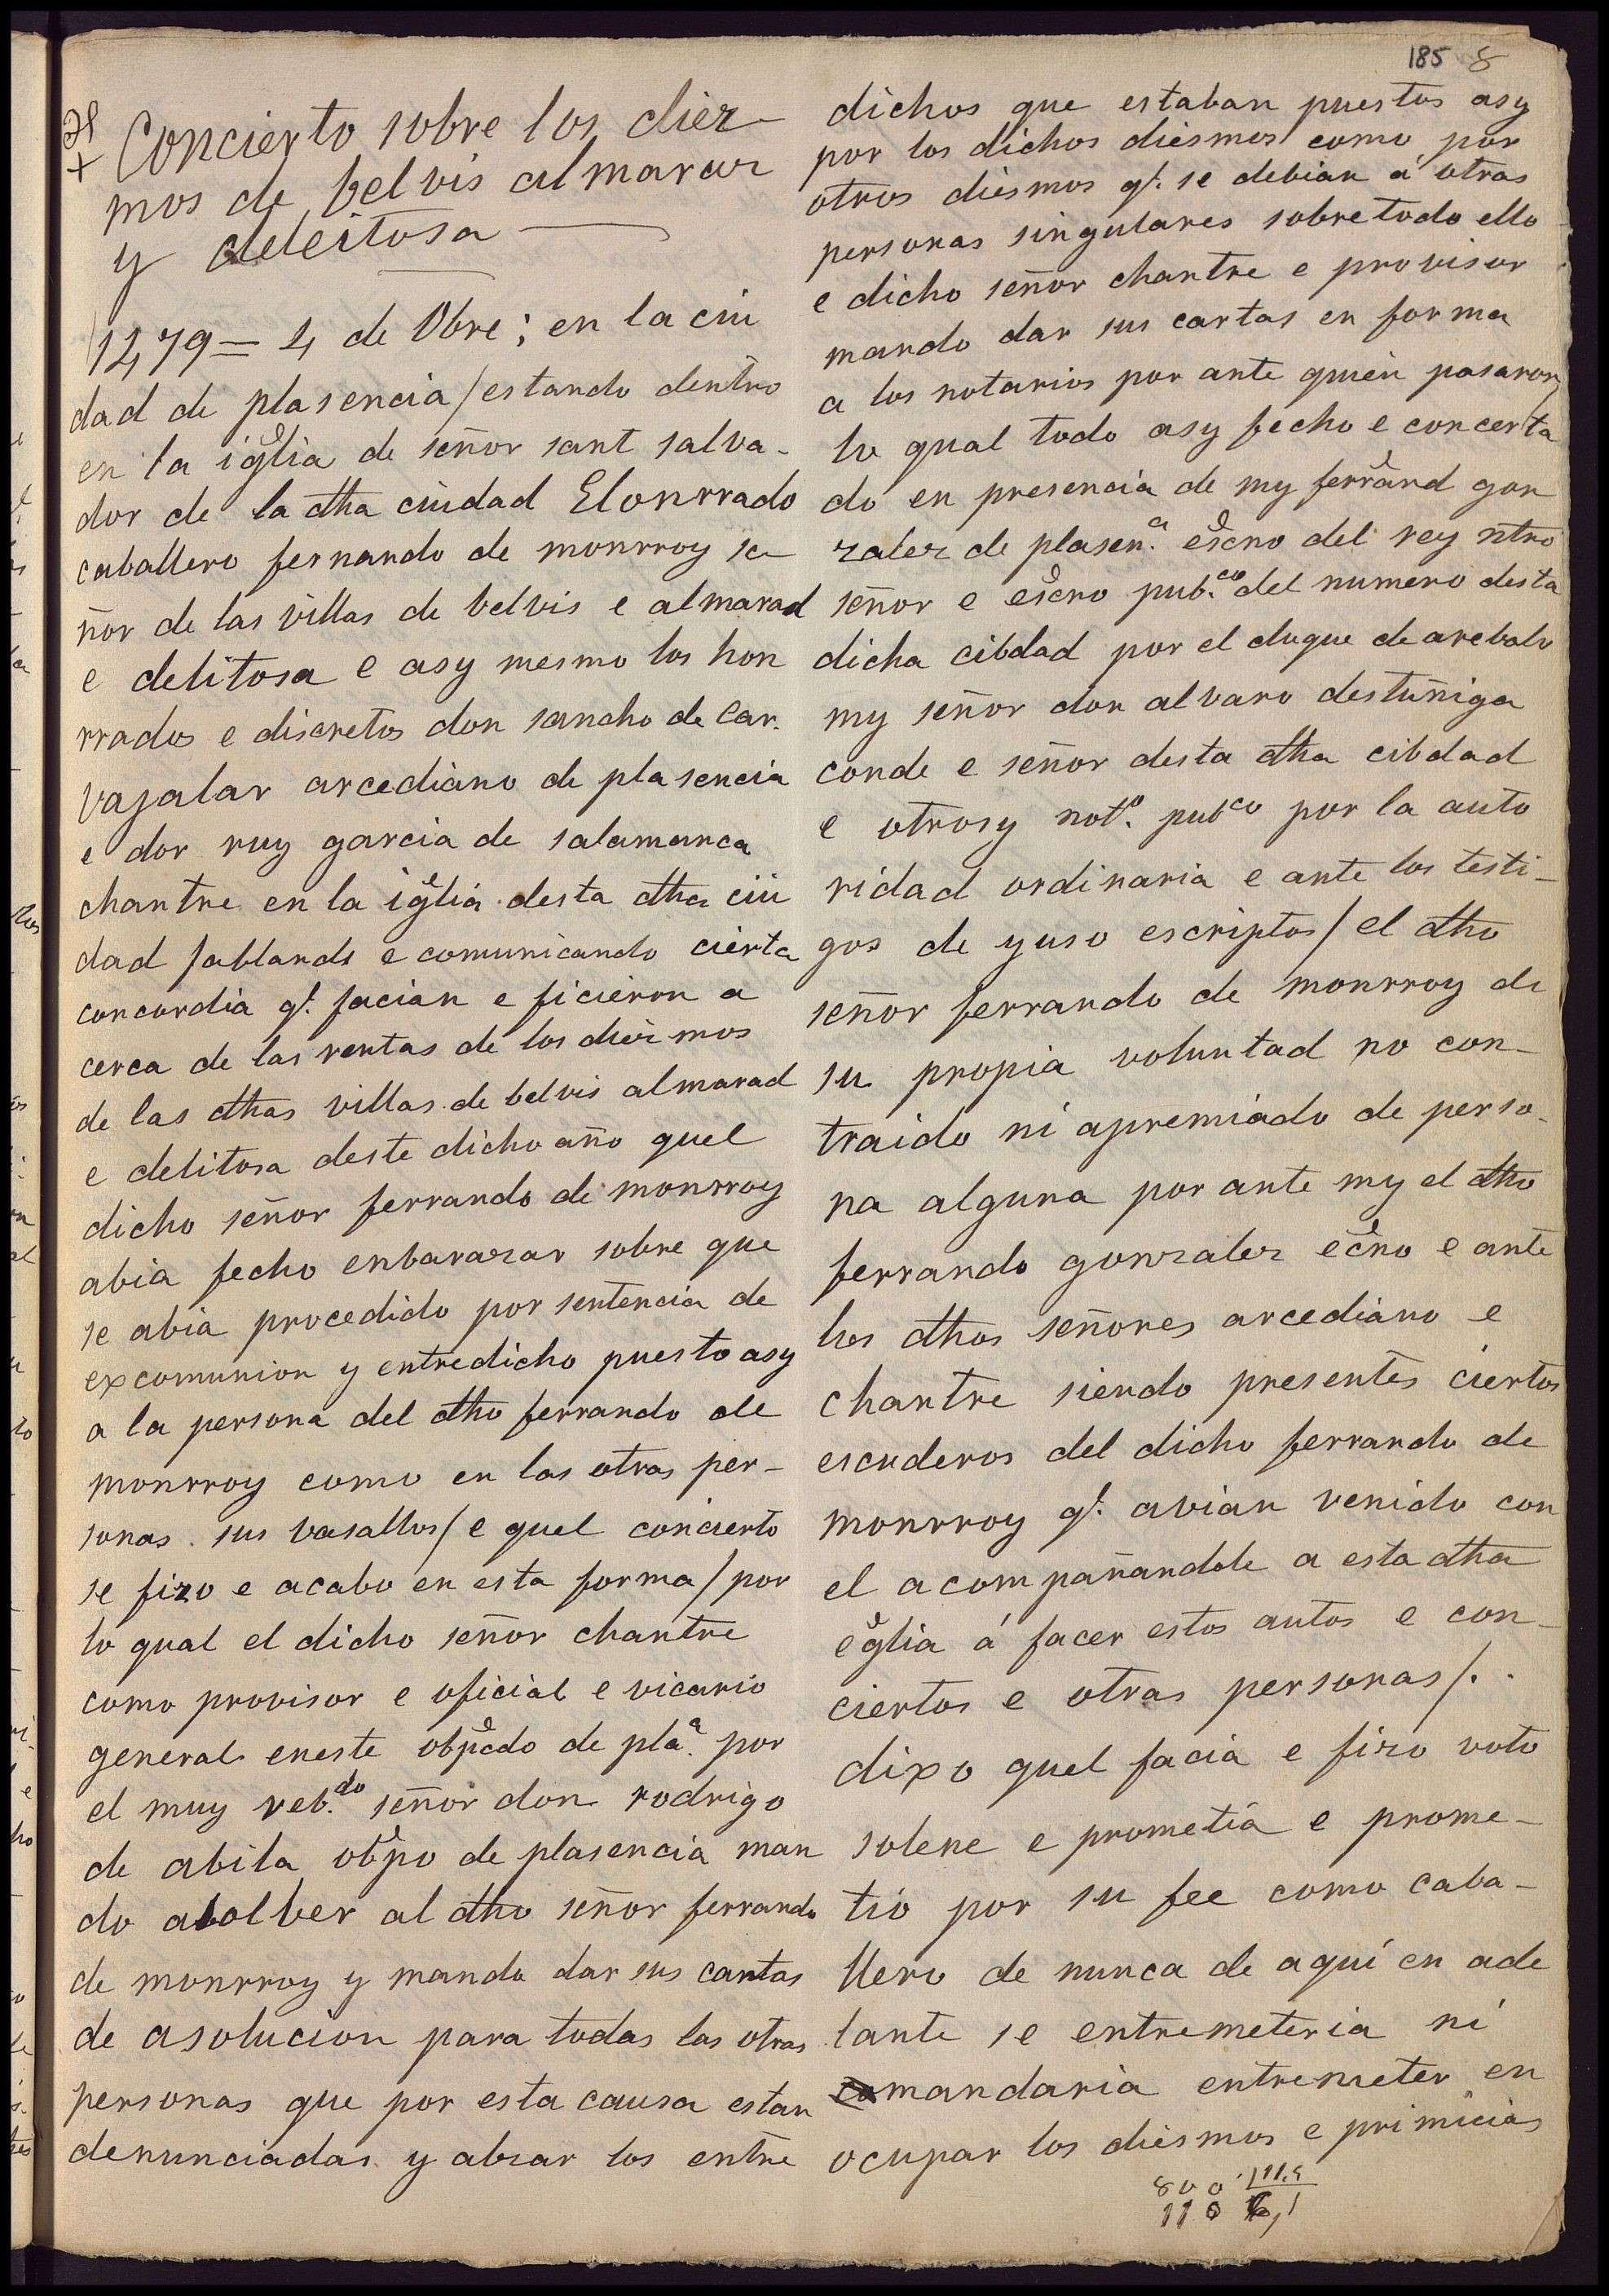 185 8
Concierto sobre los diez-
mos de belvis almaraz
y deleitosa
1479 = 4 de Obre; en la ciu
dad de plasencia / estando dentro
en la iglia de señor sant salva-
dor de la dha ciudad El onrrado
caballero fernando de monrroy se-
ñor de las villas de belvis e almarad
e delitosa e asy mesmo los hon
rrados e discretos don sancho de Car.
vajalar arcediano de plasencia
e don ruy garcia de salamanca
chantre en la iglia desta dha ciu
dad fablando e comunicando cierta
concordia q.e facian e ficieron a
cerca de las rentas de los diezmos
de las dhas villas de belvis almarad
e delitosa deste dicho año quel
dicho señor ferrando de monrroy
abia fecho enbarazar sobre que
se abia procedido por sentencia de
excomunion y entredicho puesto asy
a la persona del dho ferrando de
monrroy como en las otras per-
sonas sus vasallos / e quel concierto
se fizo e acabo en esta forma / por
lo qual el dicho señor chantre
como provisor e oficial e vicario
general eneste obpcdo de pla.a por
el muy reb.do señor don rodrigo
de abila obpo de plasencia man
do asolber al dho señor ferrando
de monrroy y mando dar sus cartas
de asolucion para todas las otras
personas que por esta causa estan
denunciadas y abzar los entre
dichos que estaban puestos asy
por los dichos diesmos como por
otros diesmos q.e se debian á otras
personas singulares sobre todo ello
e dicho señor chantre e provisor
mando dar sus cartas en forma
a los notarios por ante quien pasaron /
lo qual todo asy fecho e concerta
do en presencia de my ferrand gon
zalez de plasen.a escno del rey ntro
señor e escno pub.co del numero desta
dicha cibdad por el duque de arebalo
my señor don alvaro destuñiga
conde e señor desta dha cibdad
e otrosy not.o pubco por la auto
ridad ordinaria e ante los testi-
gos de yuso escriptos / el dho
señor ferrando de monrroy de
su propia voluntad no con-
traido ni apremiado de perso-
na alguna por ante my el dho
ferrando gonzalez ecno e ante
los dhos señores arcediano e
chantre siendo presentes ciertos
escuderos del dicho ferrando de
monrroy q.e avian venido con
el acompañandole a esta dha
eglia á facer estos autos e con-
ciertos e otras personas /.
dixo quel facia e fizo voto
solene e prometia e prome-
tió por su fee como caba-
llero de nunca de aquí en ade
lante se entremeteria ni
mandaria entremeter en
ocupar los diesmos e primicias
800
110